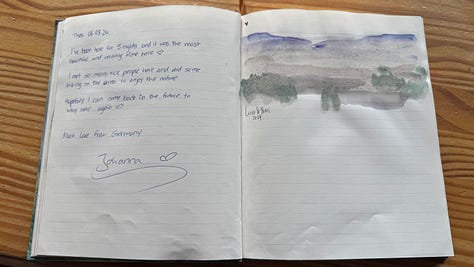 06.08.24
I've been here for 5 nights and it was the most
beautiful and relaxing time here
I met so many nice people here and did some
hiking in the to enjoy the nature
Hopefully I can come back in the future to
stay here again
Much Love from Germany
Johanna
2024